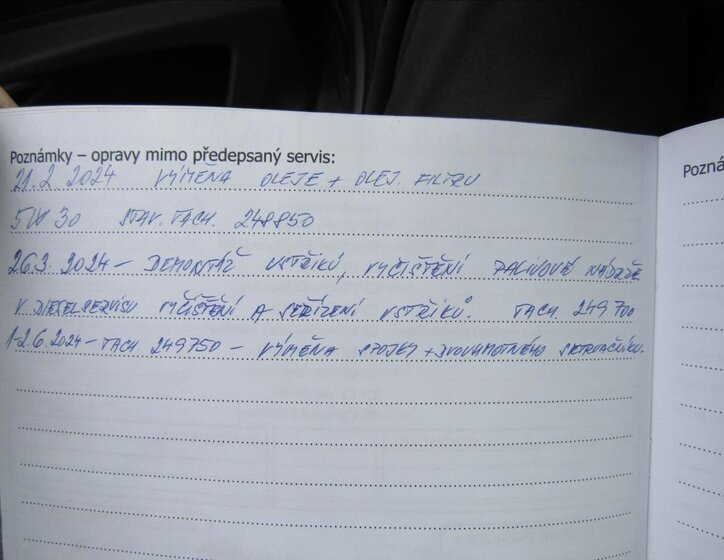 Poznámky – opravy mimo předepsaný servis:
Pozná
21.2. 2024 VÝMĚNA OLEJE + OLEJ. FILTRU
5W30 STAV. TACH. 248850
26.3. 2024 – DEMONTÁŽ VSTŘIKŮ, VYČIŠTĚNÍ PALIVOVÉ NÁDRŽE
V DIESELSERVISU VYČIŠTĚNÍ A SEŘÍZENÍ VSTŘIKŮ. TACH 249700
1-2.6.2024 – TACH 249750 – VÝMĚNA SPOJKY + DVOUHMOTNÉHO SETRVAČNÍKU.